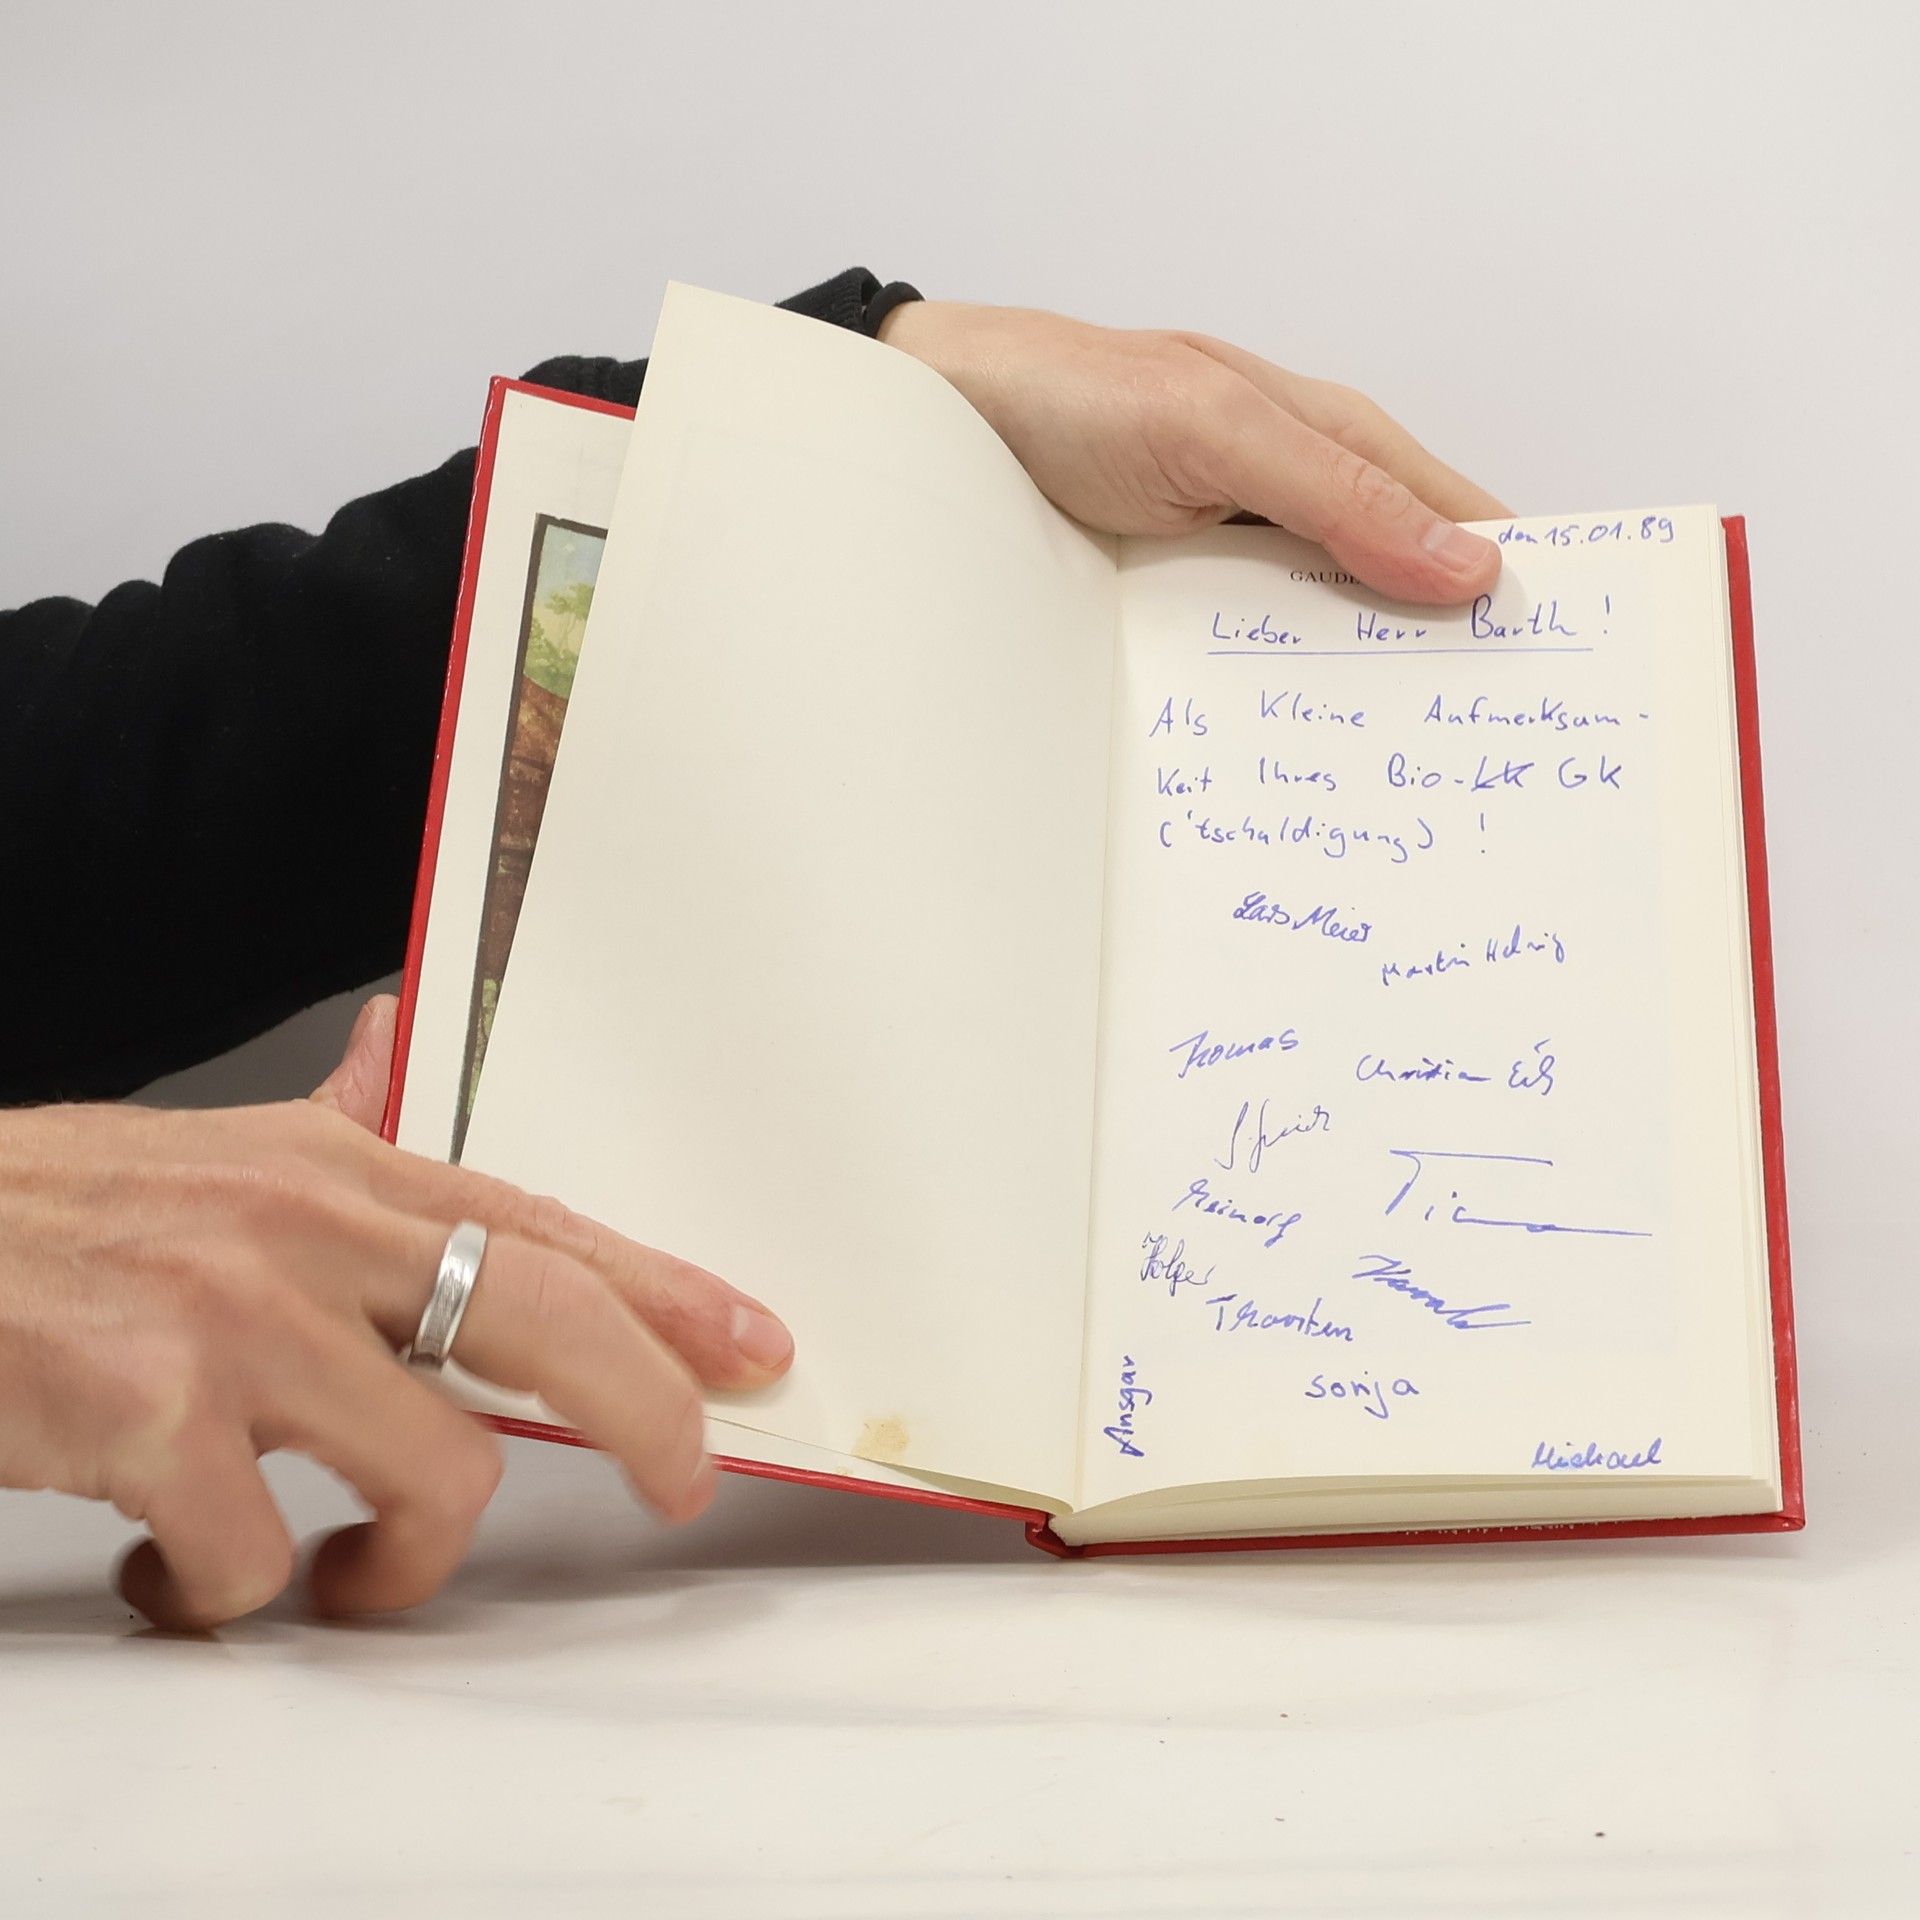 den 15.01.89
GAUDE
Lieber Herr Barth!
Als Kleine Aufmerksam-
keit Ihres Bio-LK GK
('tschuldigung) !
Lars Meier
Martin Helmig
Thomas
Christian
Tina
Meinolf
Holger
Thorsten
Ansgar
sonja
Michael